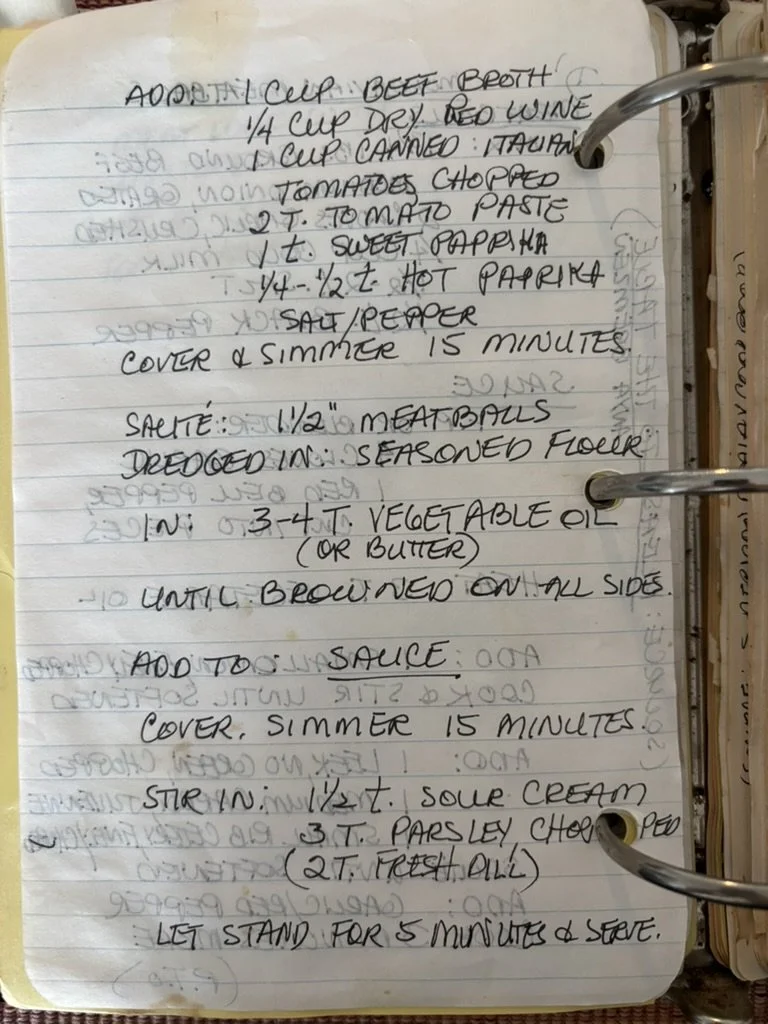 ADD: 1 CUP BEEF BROTH
1/4 CUP DRY RED WINE
1 CUP CANNED ITALIAN
TOMATOES CHOPPED
2 T. TOMATO PASTE
1 t. SWEET PAPRIKA
1/4 - 1/2 t. HOT PAPRIKA
SALT/PEPPER
COVER & SIMMER 15 MINUTES.
SAUTÉ: 1 1/2" MEATBALLS
DREDGED IN: SEASONED FLOUR
IN: 3-4 T. VEGETABLE OIL
(OR BUTTER)
UNTIL BROWNED ON ALL SIDES.
ADD TO: SAUCE.
COVER, SIMMER 15 MINUTES.
STIR IN: 1 1/2 t. SOUR CREAM
3 T. PARSLEY, CHOPPED
(2 T. FRESH DILL)
LET STAND FOR 5 MINUTES & SERVE.